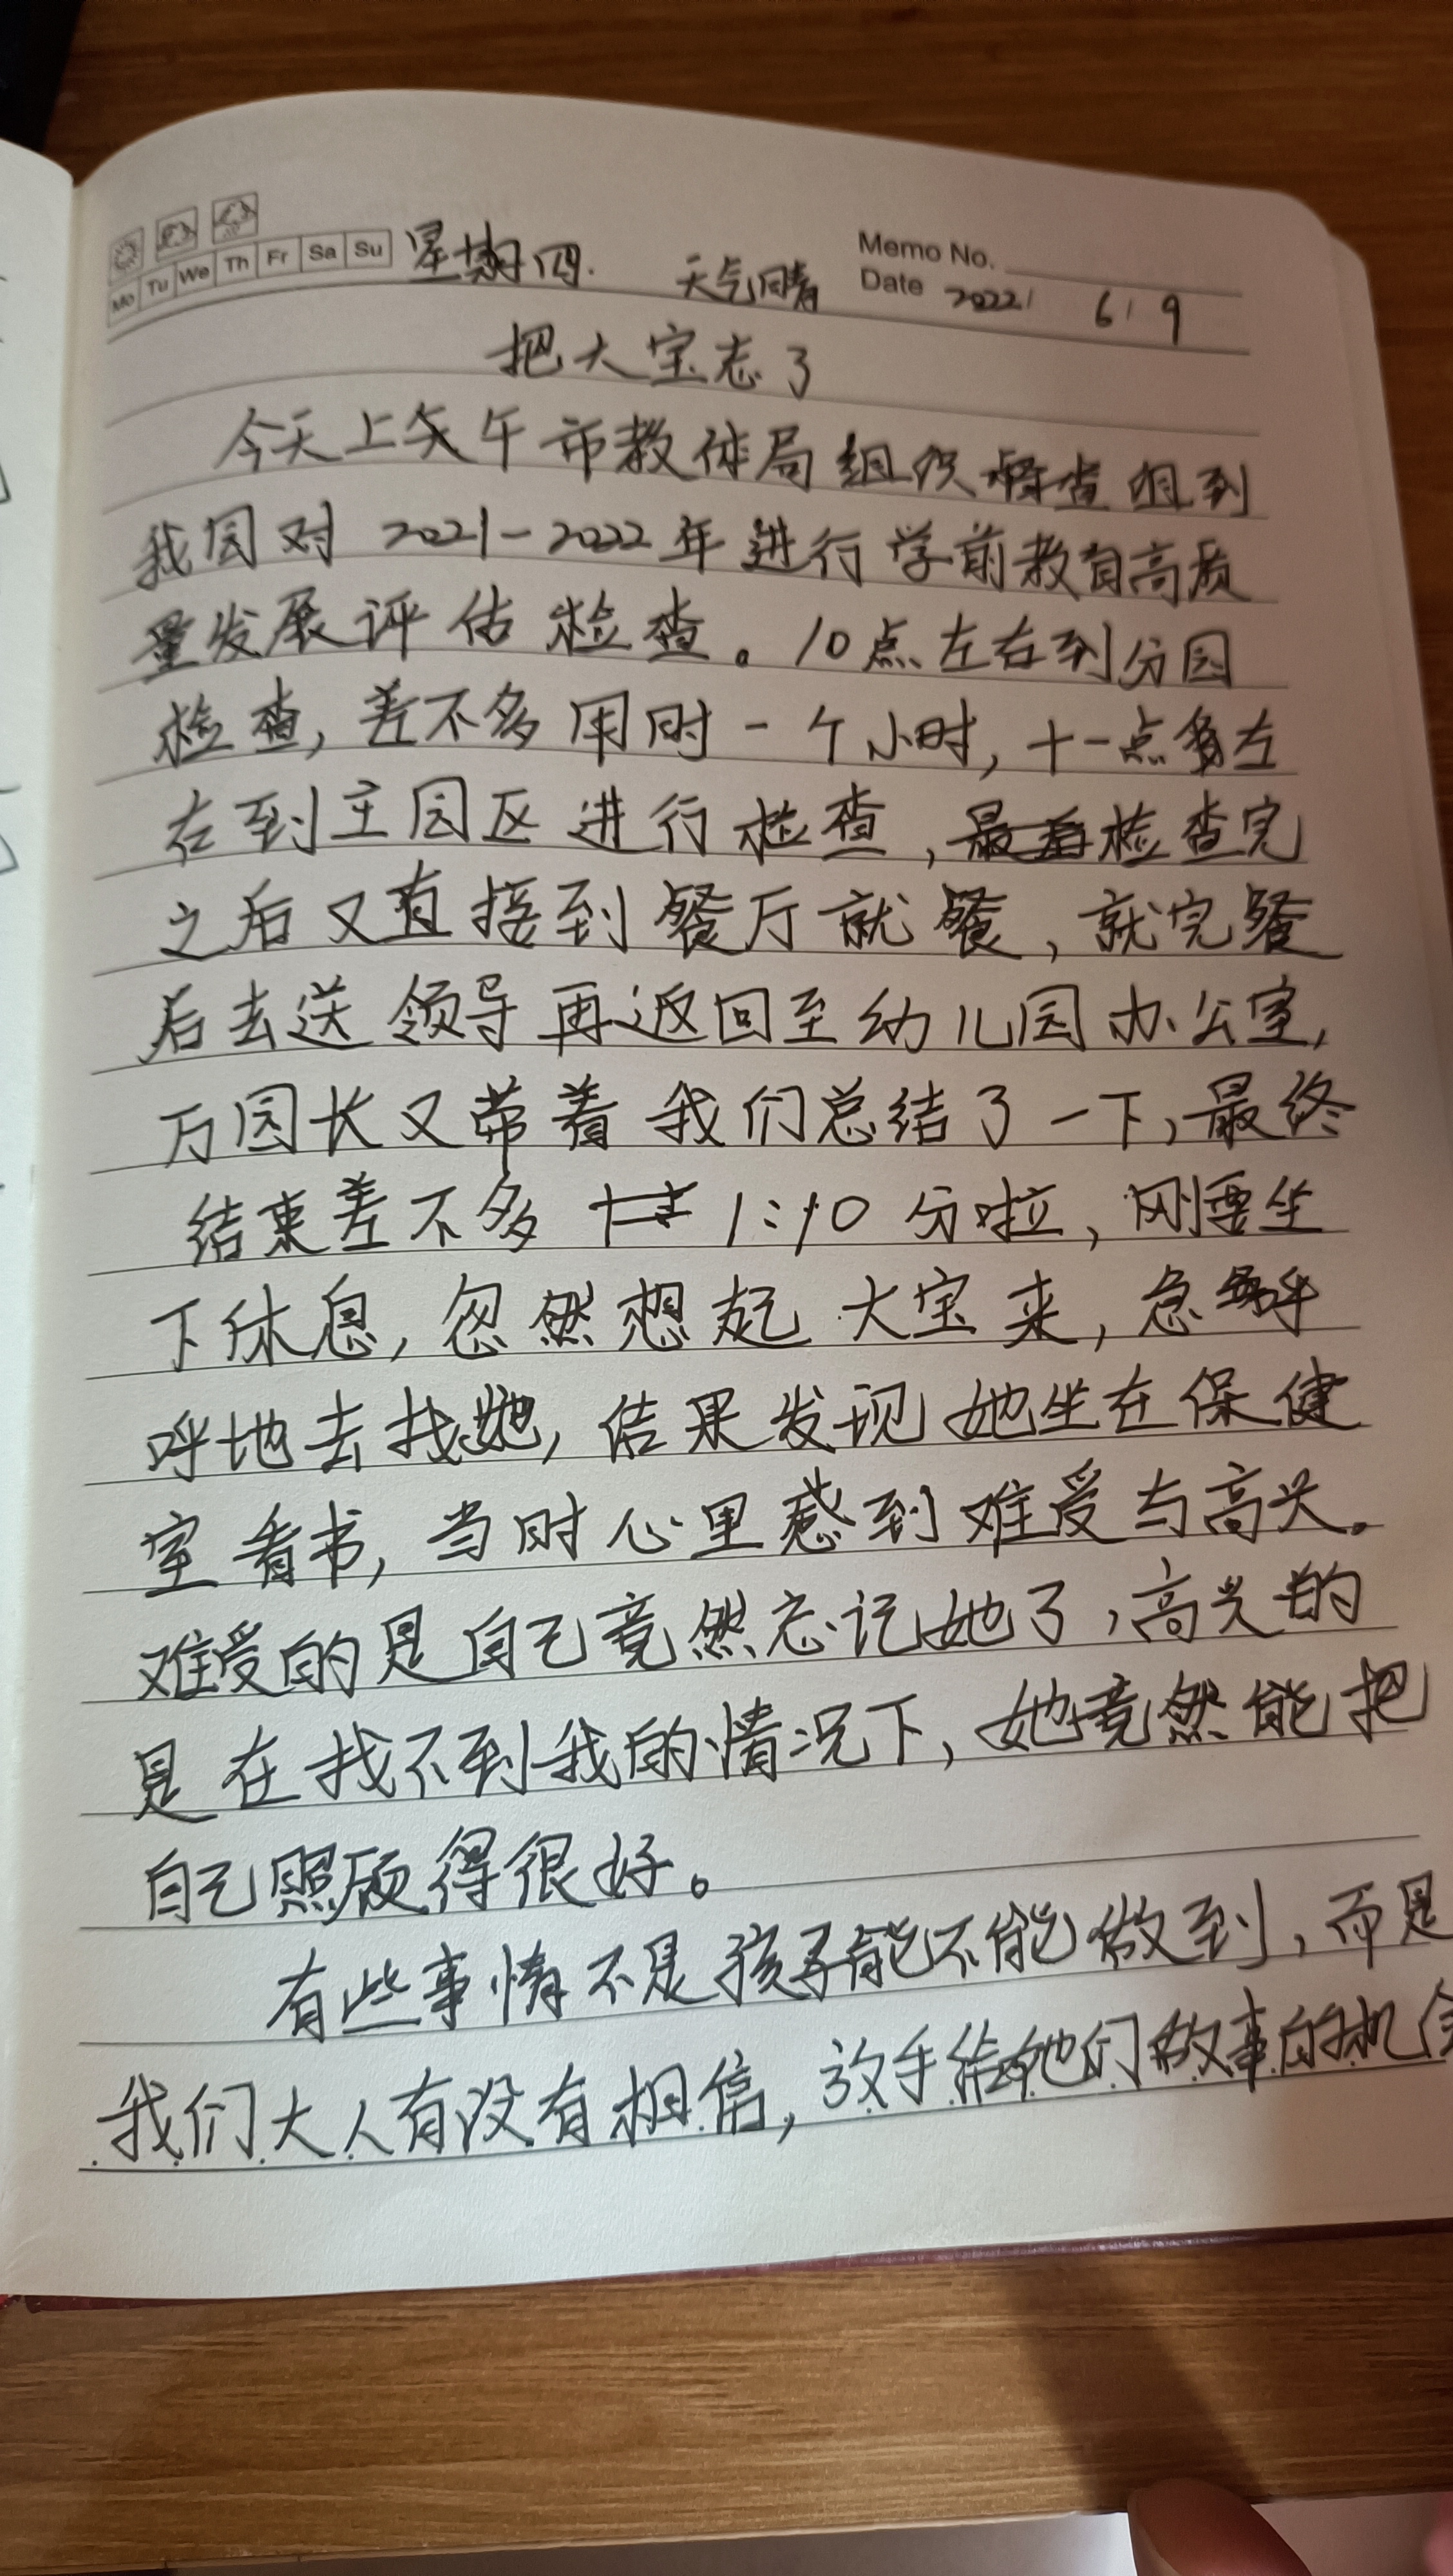 Mo Tu We Th Fr Sa Su 星期四. 天气晴 Memo No.
Date 2022 / 6 / 9
把大宝忘了
今天上午市教体局组织督查组到
我园对2021-2022年进行学前教育高质
量发展评估检查。10点左右到分园
检查,差不多用时一个小时,十一点多左
右到主园区进行检查,检查完
之后又直接到餐厅就餐,就完餐
后去送领导再返回至幼儿园办公室,
万园长又带着我们总结了一下,最终
结束差不多1:10分啦,刚要坐
下休息,忽然想起大宝来,急呼
呼地去找她,结果发现她坐在保健
室看书,当时心里感到难受与高兴。
难受的是自己竟然忘记她了,高兴的
是在找不到我的情况下,她竟然能把
自己照顾得很好。
有些事情不是孩子能不能做到,而是
我们大人有没有相信,放手给她们做事的机会